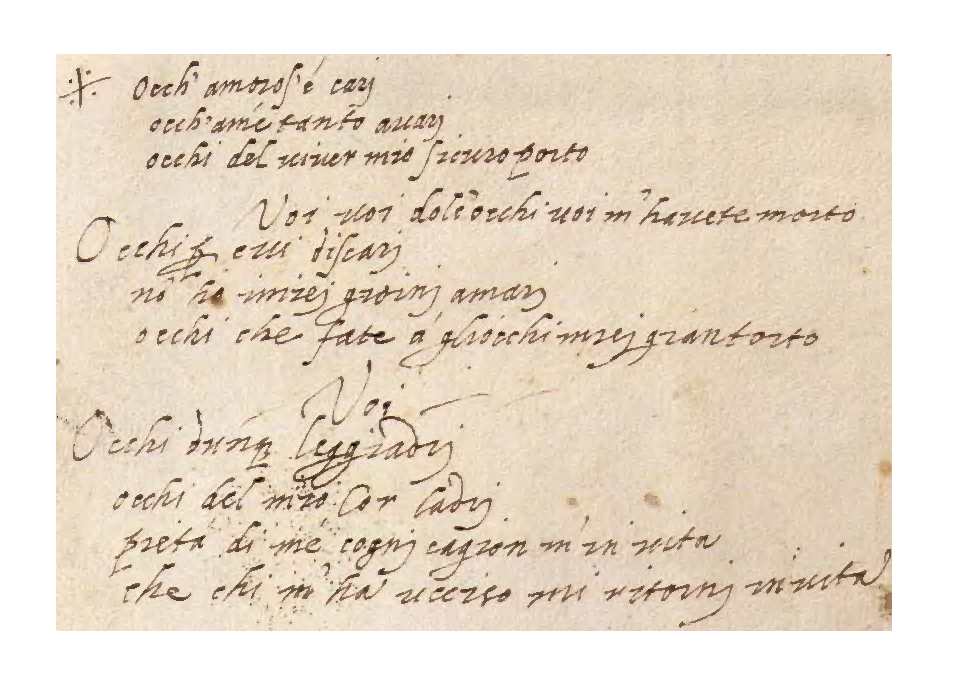 Occh' amoros' é cari
occh' amé tanto auari
occhi del uiuer mio sicuro porto
Voi uoi dolc' occhi uoi m' hauete morto
Occhi ꝑ cui discari
nō ho i miei giorni amari
occhi che fate á gliocchi miei gran torto
Voi
Occhi dunq leggiadri
occhi del mio Cor ladri
pietá di mé cogni cagion m' in uita
che chi m' ha ucciso mi ritorni in uita